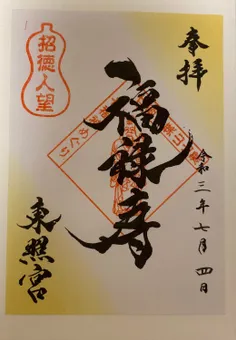 奉拝
令和三年七月四日
福禄寿
東照宮
招徳人望